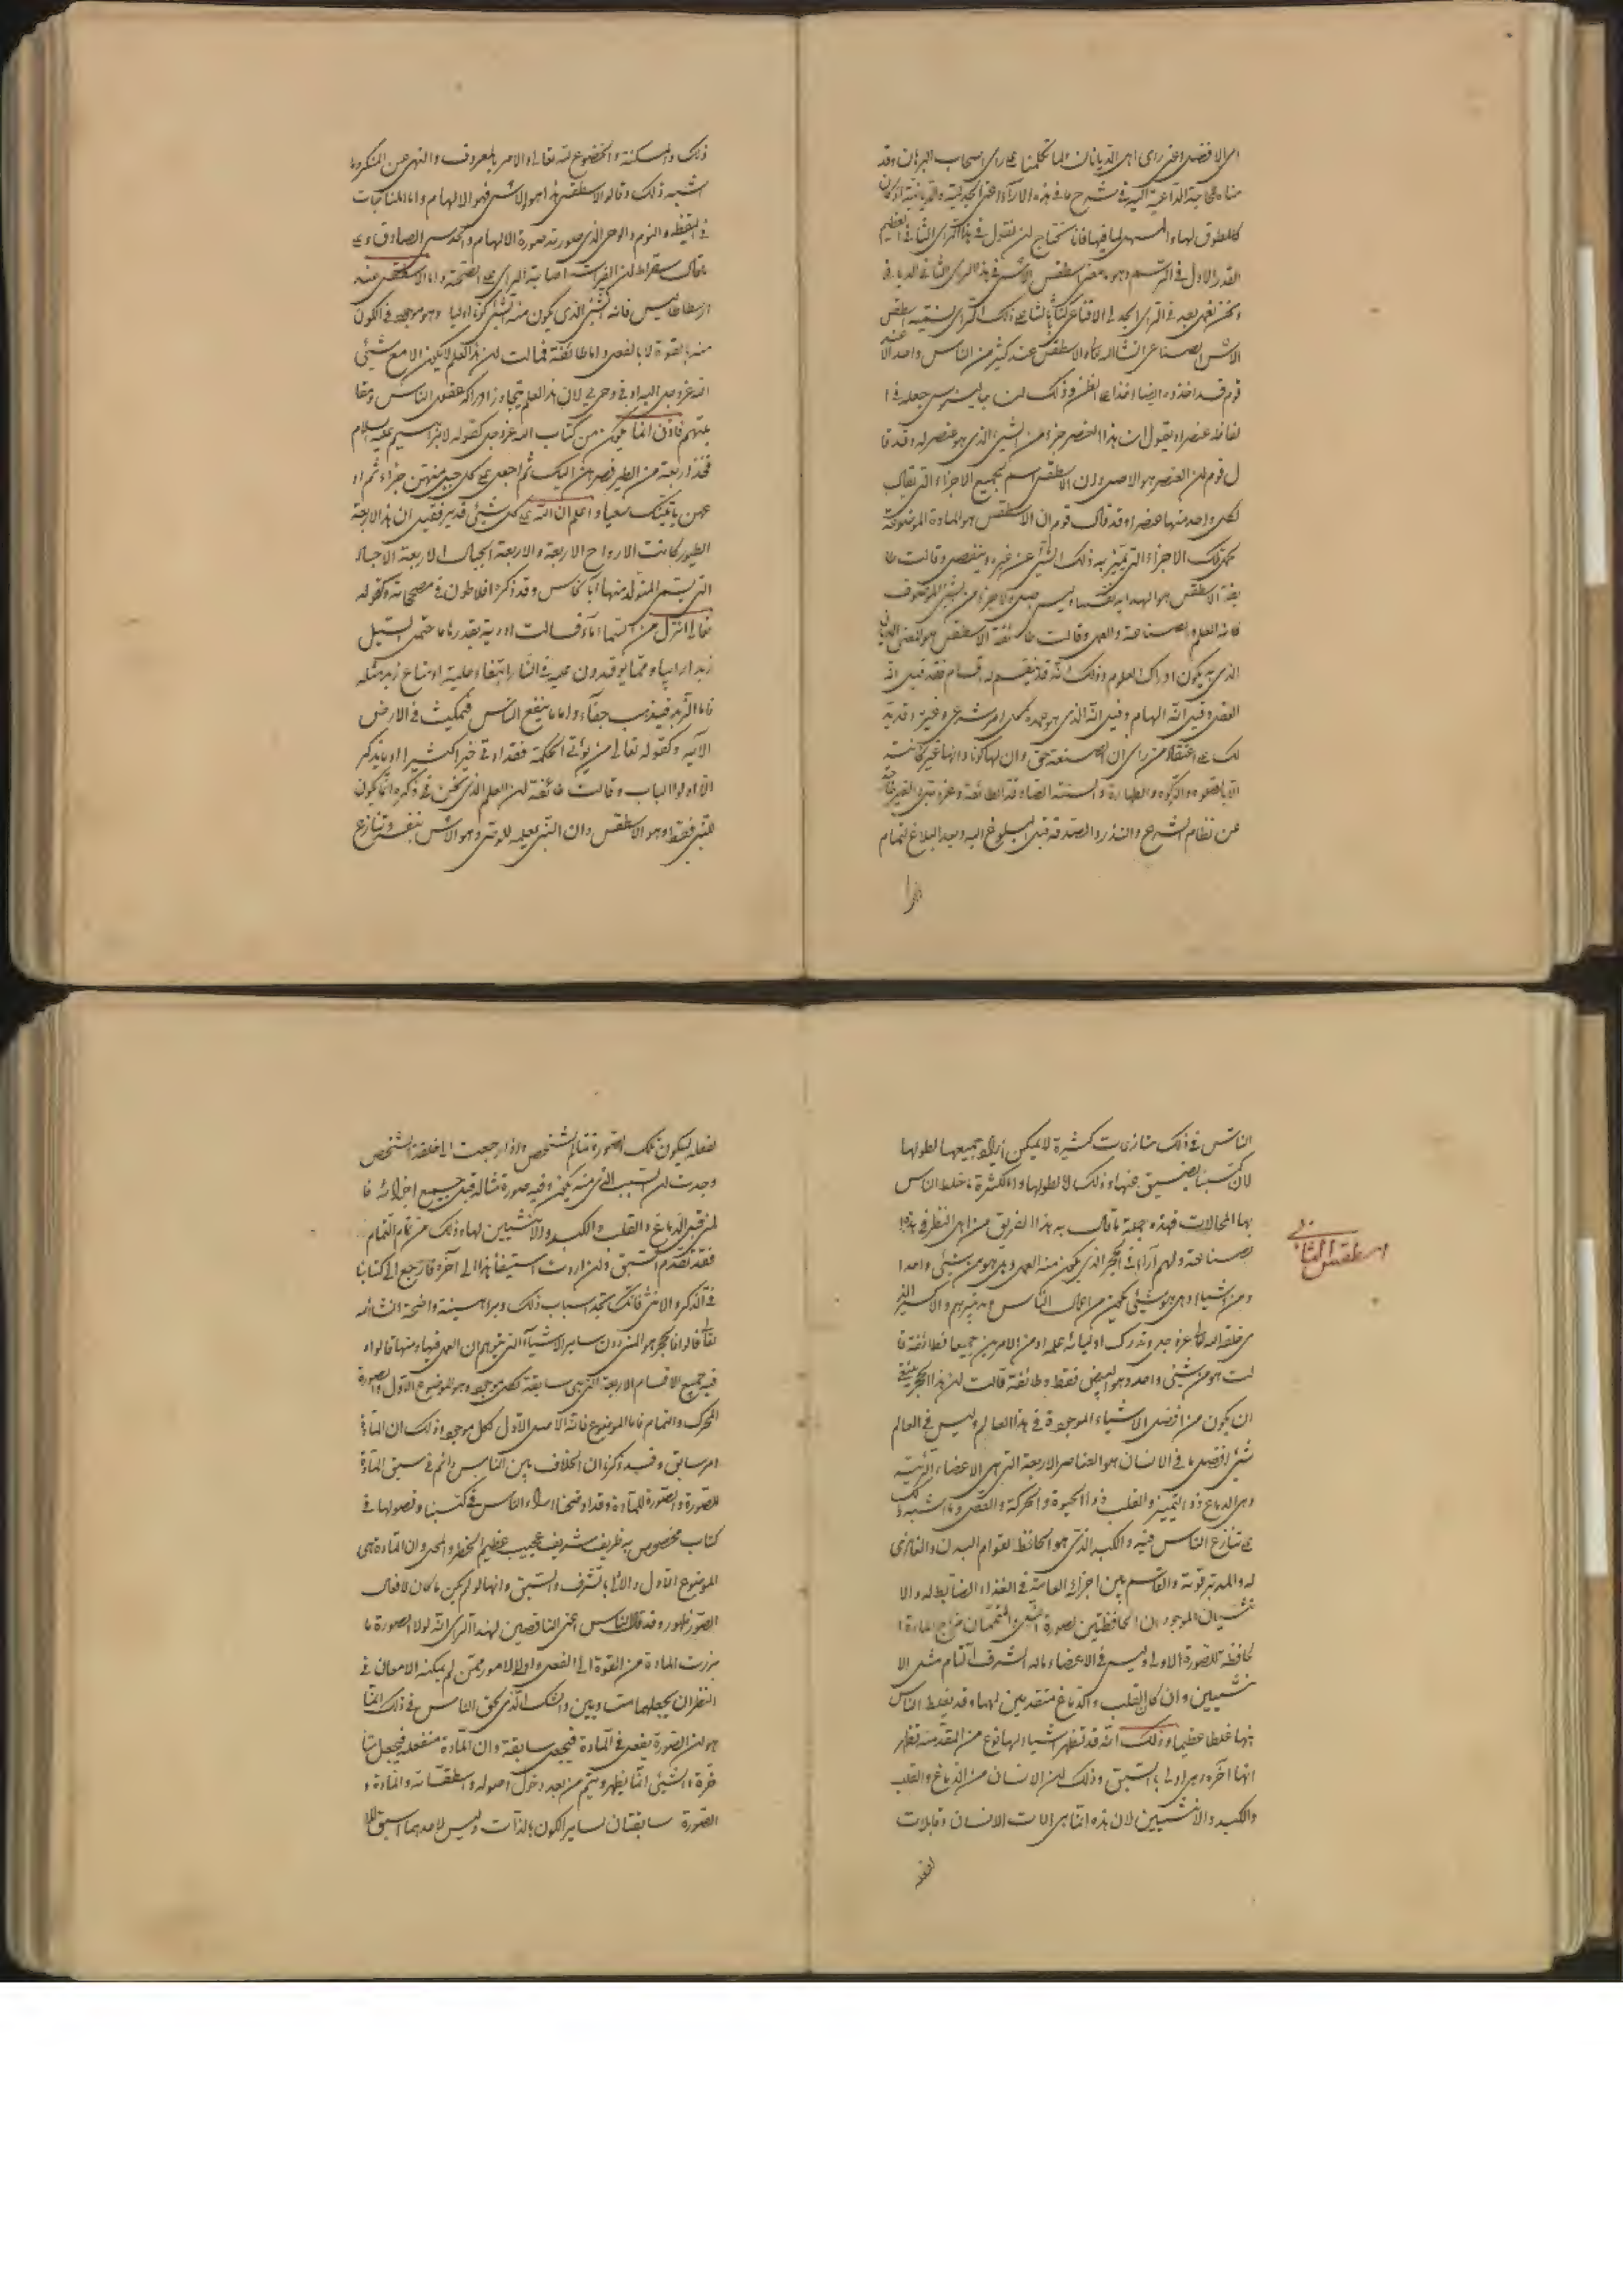 اى الافضل اعنى راى اهل الديانات وانما تكلمنا على راى اصحاب البرهان وقد
كالطرق لها والمسهل لما فيها فانا نحتاج لن نقول فى هذا الراى الثانى العظيم
القدر الاول فى الرسم وهو معنى اسطقس الاس فى هذا الراى الثانى
الاس الصناعى انشاالله تعالى الاسطقس عند كثير من الناس واحد الا
قوم قد اخذوه ايضا اخذا على الظن وذلك لن جالينوس جعله فى ا
لفاظه عنصرا ويقول ان هذا العنصر جزء من الشىء الذى هو عنصر له وقد قا
ل قوم لن العنصر هو الاصل ولن الاسطقس اسم لجميع الاجزاء التى يقال
لكل واحد منها عنصرا وقد قال قوم ان الاسطقس هو المادة الموضوعة
لحمل تلك الاجزاء التى يتميز به ذلك الشىء عن غيره وينفصل وقالت طا
يفة الاسطقس هو الهداية نفسها وليس جبلى ولا جزء من الشىء الموصوف
فانه العلم والصناعة والعمل وقالت طائفة الاسطقس هو المعنى
الذى به يكون ادراك العلوم وذلك انه قد ينقسم اقسام فقد قيل انه
العقل وقيل انه الهام وقيل انه الذى هو عمدة لكل امر شرعى وغيره
لك على اعتقاد من راى ان الصنعة حق وان لها كونا وانها غير كائنة
الا بالصلوة والزكوة والطهارة والسنة الصادقة
عن نظام الشرع والنذر والصدقة قبل البلوغ اليه وبعد البلاغ لتمام
ذلك والمسكنة والخضوع لله تعالى والامر بالمعروف والنهى عن المنكر وما
اشبه ذلك وقالوا الاسطقس هذا هو الاس فهو الالهام واما المناجات
فى اليقظة والنوم والوحى الذى صورته صورة الالهام والحدس الصادق على
ما قال سقراط لن الفراسة اصابة الراى على الصحة واما الاسطقس عند
ارسطاطاليس فانه الشىء الذى يكون منه الشىء كونا اوليا وهو موجود فى الكون
منه بالقوة لا بالفعل واما طائفة فقالت لن هذا العلم لا يكون الا مع شىء
الله عز وجل البداء وفى وحى لان هذا العلم يتجاوز ادراكه عقول الناس وطبا
يعهم فاذن انما يكون من كتاب الله عز وجل كقوله لابراهيم عليه السلام
فخذ اربعة من الطير فصرهن اليك ثم اجعل على كل جبل منهن جزءا ثم اد
عهن ياتينك سعيا واعلم ان الله على كل شىء قدير فقيل ان هذه الاربعة
الطيور كانت الارواح الاربعة والاربعة الجبال الاربعة الاجساد
التى يتم المتولد منها وقد ذكره افلاطون فى مصححاته وكقوله
تعالى انزل من السماء ماء فسالت اودية بقدرها فاحتمل السيل
زبدا رابيا ومما يوقدون عليه فى النار ابتغاء حلية او متاع زبد مثله
فاما الزبد فيذهب جفاء واما ما ينفع الناس فيمكث فى الارض
الآية وكقوله تعالى من يؤتى الحكمة فقد اوتى خيرا كثيرا وما يذكر
الا اولوا الالباب وقالت طائفة لن العلم الذى نحن فى ذكره انما يكون
للنبى فقط وهو الاسطقس وان النبى يعلمه للوصى وهو الاس بنفسه وتنازع
الناس فى ذلك منازعات كثيرة لا يمكن جميعها لطولها
لان كتبنا تضيق عنها وذلك لا لطولها وانما لكثرة ما خلط الناس
بها المحالات فهذه جملة ما قال به هذا الفريق من اهل النظر فى هذه ا
لصناعة ولهم آراء فى الحجر الذى يكون منه العمل وهل هو من شىء واحد ا
و من اشياء وهل هو شىء يكون من اعمال الناس وتدبيرهم والاكسير الذ
ى خلقه الله تعالى عز وجل وتدرك اوليائه علمه او من الامرين جميعا فطائفة قا
لت هو من شىء واحد وهو البيض فقط وطائفة قالت لن هذا الحجر ينبغى
ان يكون من افضل الاشياء الموجودة فى هذا العالم وليس فى العالم
شىء افضل ما فى الانسان هو العناصر الاربعة التى هى الاعضاء الرئيسة
وهى الدماغ ذو التميز والقلب ذو الحيوة والحركة والفضل وما اشبه ذلك
على تنازع الناس فيه والكبد الذى هو الحافظ لقوام البدن والغاذى
له والمدبر قوته والقاسم بين اجزائه العامة فى الغذاء الضابط له والا
نثيان الموجودان الحافظتين لصورة الشىء المتممتان مزاج المادة ا
لحافظة للصورة الاولى وليس فى الاعضاء ماله الشرف التام مثل الا
نثيين وان كان القلب والدماغ متقدمين لهما وقد يغلط الناس
فيها غلطا عظيما وذلك انه قد تظهر اشياء لها نوع من المقدمة تظهر
انها آخره وهى اولى بالسبق وذلك لن الانسان من الدماغ والقلب
والكبد والانثيين لان هذه انما هى آلات الانسان وقابلات
اسطقس الثانى
لفعله ليكون تلك الصورة تمام الشخص واذا رجعت الى خلقة الشخص
وجدت لن السبب الذى منه يكون وفيه صورة مثاله قبل جميع اجزائه فا
لمنى قبل الدماغ والقلب والكبد والانثيين لها وذلك من تمام التمام
فقد تقدم السبق ولن اردت استيفاء هذا الى آخره فارجع الى كتابنا
فى الذكر والانثى فانك تجد اسباب ذلك وبراهينه واضحة انشاالله
تعالى قالوا فالحجر هو المنى دون ساير الاشياء التى يتوهم ان العمل فيها ومنها قالوا و
فيه جميع الاقسام الاربعة التى هى سابقة لكل موجود وهو الموضوع الاول والصورة
المحرك والتمام فاما الموضوع فانه الاصل الاول لكل موجود وذلك ان المادة
امر سابق وقد ذكرنا ان الخلاف بين الناس دائم فى سبق المادة
للصورة والصورة للمادة وقد اوضحنا آراء الناس فى كتبنا وفصولها فى
كتاب مخصوص به ظريف شريف عجيب عظيم الخطر والمحل وان المادة هى
الموضوع الاول والاولى بالشرف والسبق وانها لو لم يكن ما كان لافعال
الصور ظهور وقد قال الناس اعنى الناقصين لهذا الراى انه لولا الصورة ما
برزت المادة من القوة الى الفعل واولى الامور بمن لم يمكنه الامعان فى
النظر ان يجعلهما متساويين والشك الذى لحق الناس فى ذلك انما
هو لن الصورة تفعل فى المادة فيجعل سابقة وان المادة منفعلة فيجعل متأ
خرة والشىء انما يظهر ويتم من بعد دخول اصوله واسطقساته والمادة و
الصورة سابقتان لساير الكون بالذات وليس لاحدهما سبق